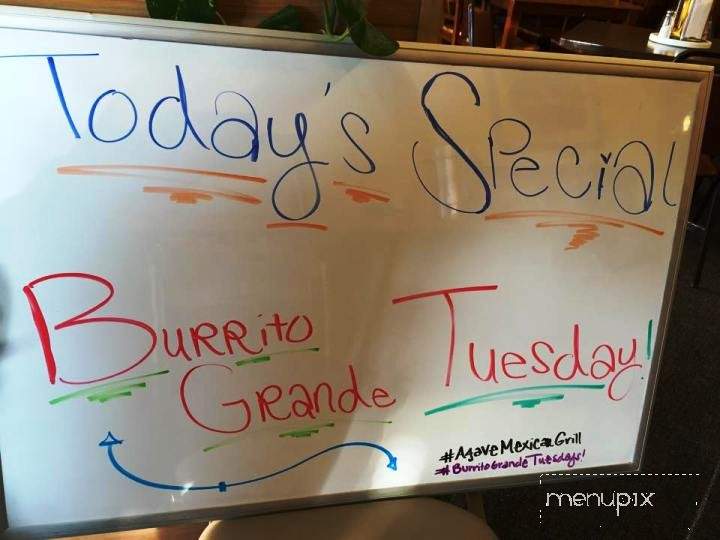 Today's Special
Burrito
Grande
Tuesday!
#AgaveMexicanGrill
#BurritoGrandeTuesdays!
menupix